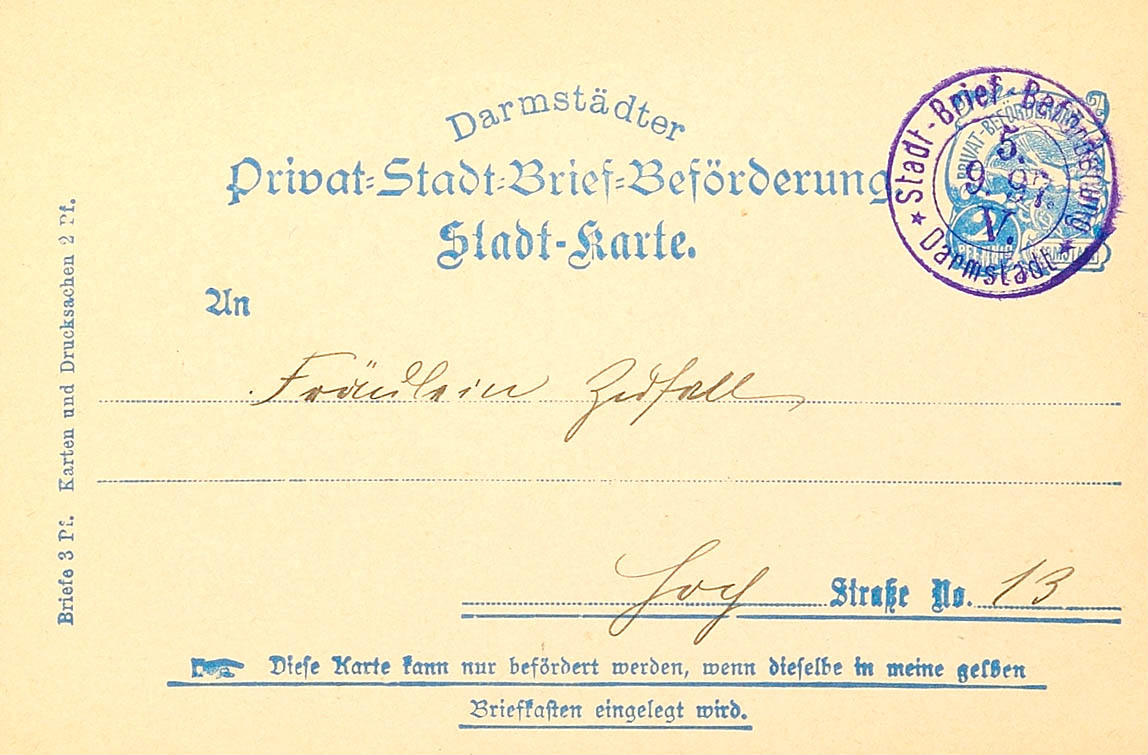 Darmstädter
Privat-Stadt-Brief-Beförderung
Stadt-Karte.
Stadt-Brief-Beförderung
5.
9. 97.
V.
* Darmstadt *
PRIVAT-BEFÖRDERUNG
2
PFENNIG
DARMSTADT
An
Fräulein Zufall
Hoch Straße No. 13
Diese Karte kann nur befördert werden, wenn dieselbe in meine gelben
Briefkasten eingelegt wird.
Briefe 3 Pf. Karten und Drucksachen 2 Pf.